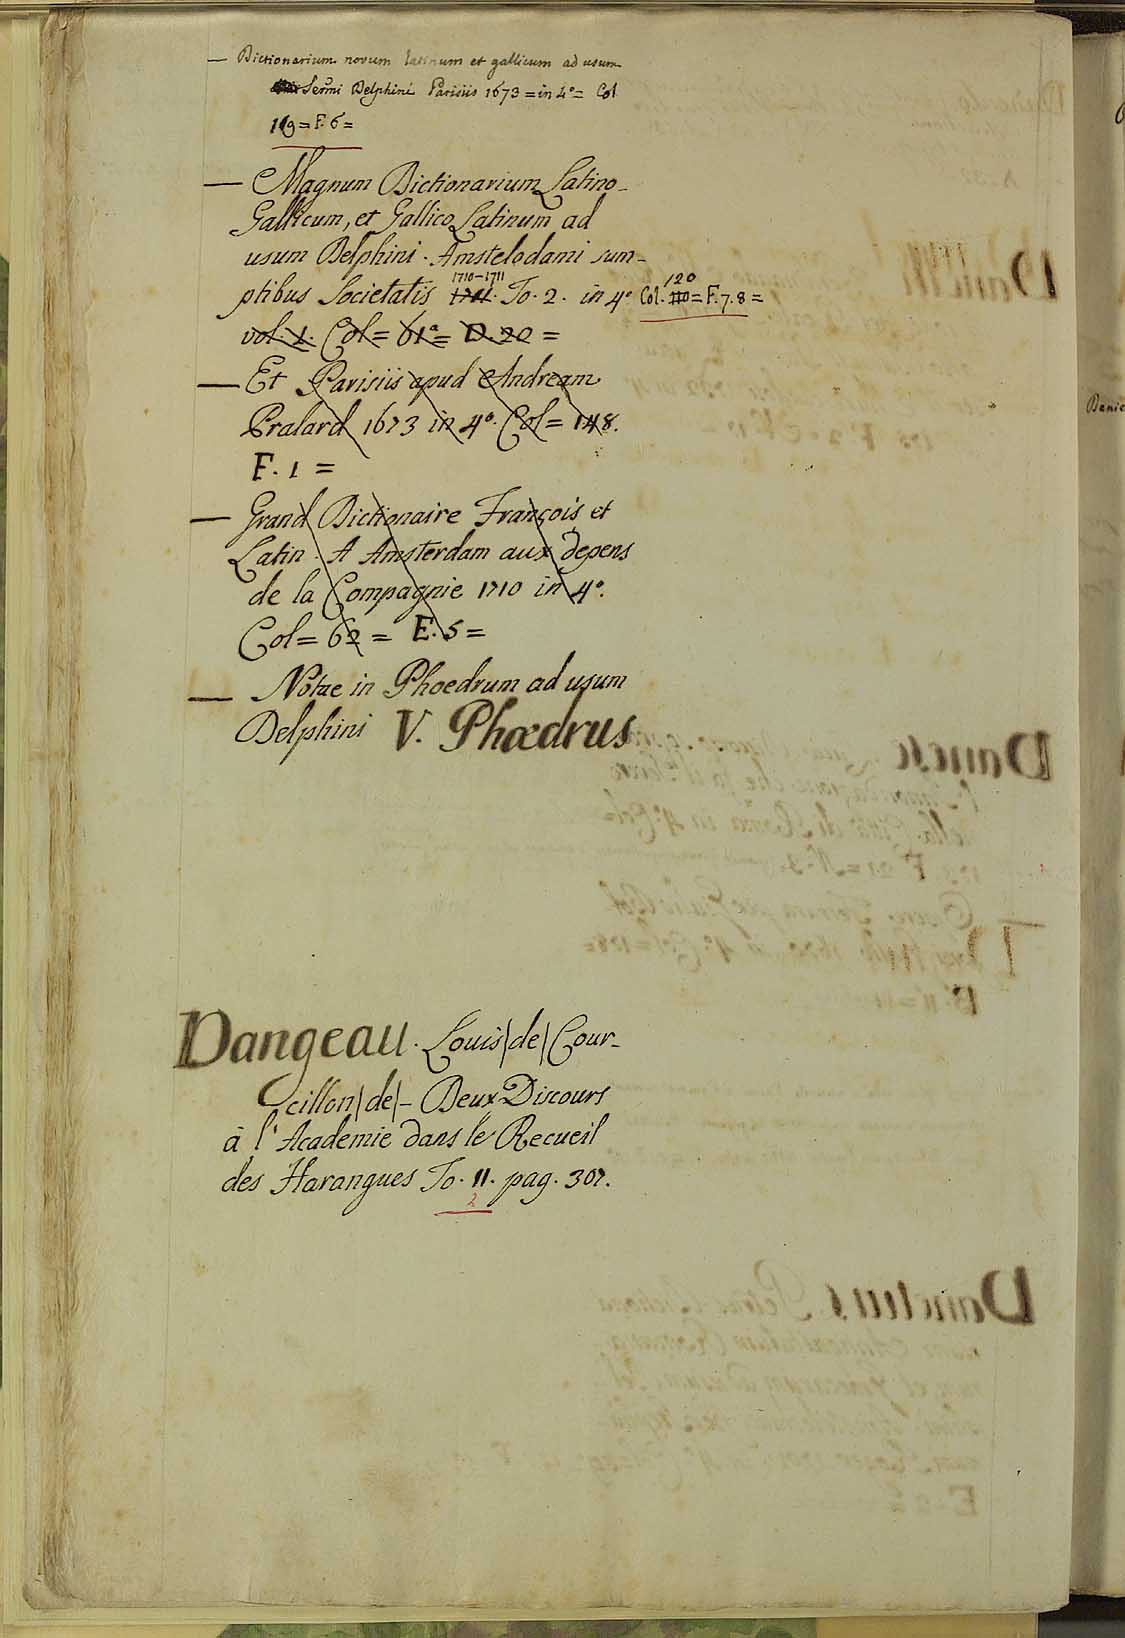 — Dictionarium novum latinum et gallicum ad usum
Sermi Delphini Parisiis 1673 = in 4° = Col
119 = F. 6 =
— Magnum Dictionarium Latino-
Gallicum, et Gallico Latinum ad
usum Delphini. Amstelodami sum-
1710-1711
120
ptibus Societatis To. 2. in 4° Col. = F. 7. 8 =
vol. 1. Col = 61a = D. 20 =
— Et Parisiis apud Andream
Pralard 1673 in 4°. Col = 148.
F. 1 =
— Grand Dictionaire François et
Latin. A Amsterdam aux depens
de la Compagnie 1710 in 4°.
Col = 62 = E. 5 =
— Notae in Phoedrum ad usum
Delphini V. Phœdrus
Dangeau. Louis |de| Cour-
cillon |de| - Deux Discours
à l'Academie dans le Recueil
des Harangues To. II. pag. 307.
2